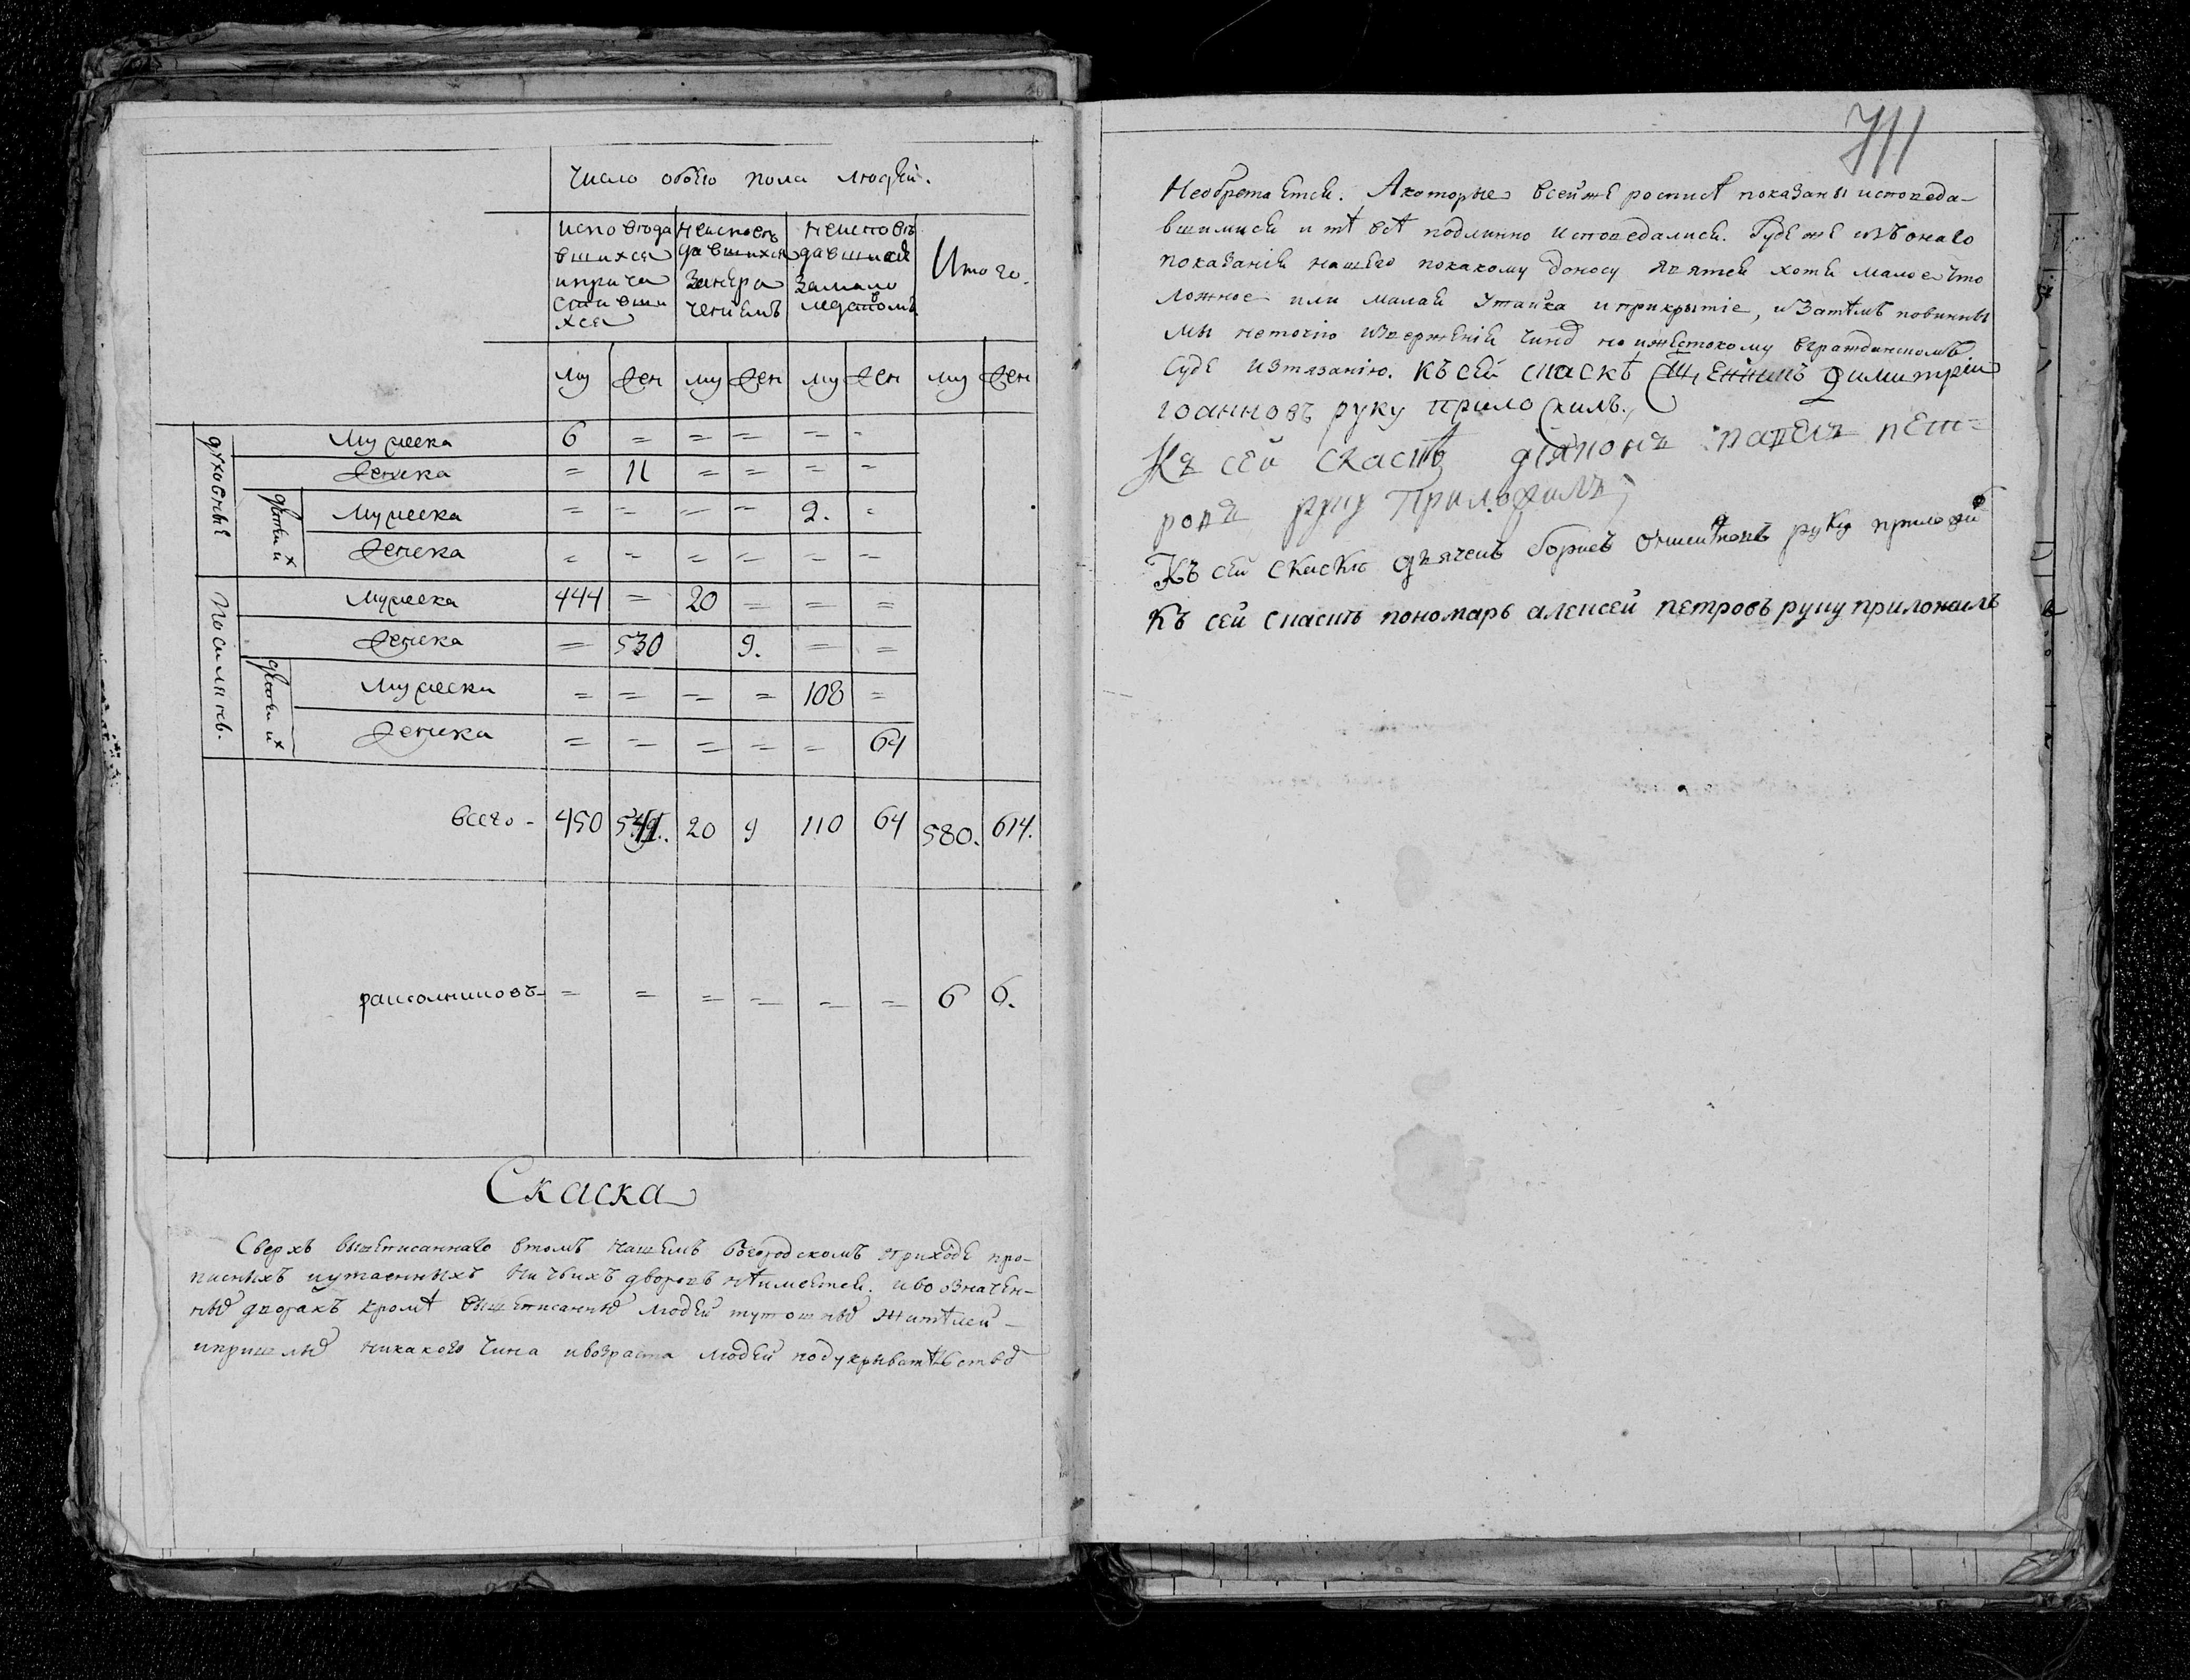 число обоего пола людей.
исповеда
вшихся
и прича
стивши
хся
неисповѣ
давшихся
занепра
чениемъ
неисповѣ
давшихся
замало
леда́томъ
Итого.
му жен му жен му жен му жен
духовныя
мужеска 6 = = = = =
женска = 11 = = = =
дѣтеи их
мужеска = = = = 2. =
женска = = = = = =
посилянсв.
мужеска 444 = 20 = = =
женска = 530 9. = =
дѣтеи их
мужеска = = = = 108 =
женска = = = = = 64
всего - 450 541. 20 9 110 64 580. 614.
расколниковъ - = = = = = = 6 6.
Скаска
Сверхъ вышеписаннаго втомъ нашемъ Богородскомъ приходе про-
писныхъ иутаенныхъ ни чьихъ дворовъ нѣимеется. ивоозначен-
ных дворахъ кромѣ вышеписанных людей тутошных жителей -
ипришлых никакого чина ивозраста людей подукрывательством
711
Необретается. Акоторые всейже росписѣ показаны исповеда-
вшимися и тѣ всѣ подлинно исповедалися. Буде же изъонаго
показания нашего покакому доносу явится хотя малое что
ложное или малая утайка иприкрытие, изатѣмъ повинны
мы неточию извержения чинов но ижестокому вгражданскомъ
суде изтязанию. къ сей скаскѣ Священникъ Димитрий
Iоанновъ руку приложилъ.
Къ сей скаскѣ дiяконъ павелъ пет-
ровъ руку приложилъ
Къ сей скаски дьячекъ борисъ руку приложи
Къ сей скаскѣ пономарь алексей петровъ руку приложилъ